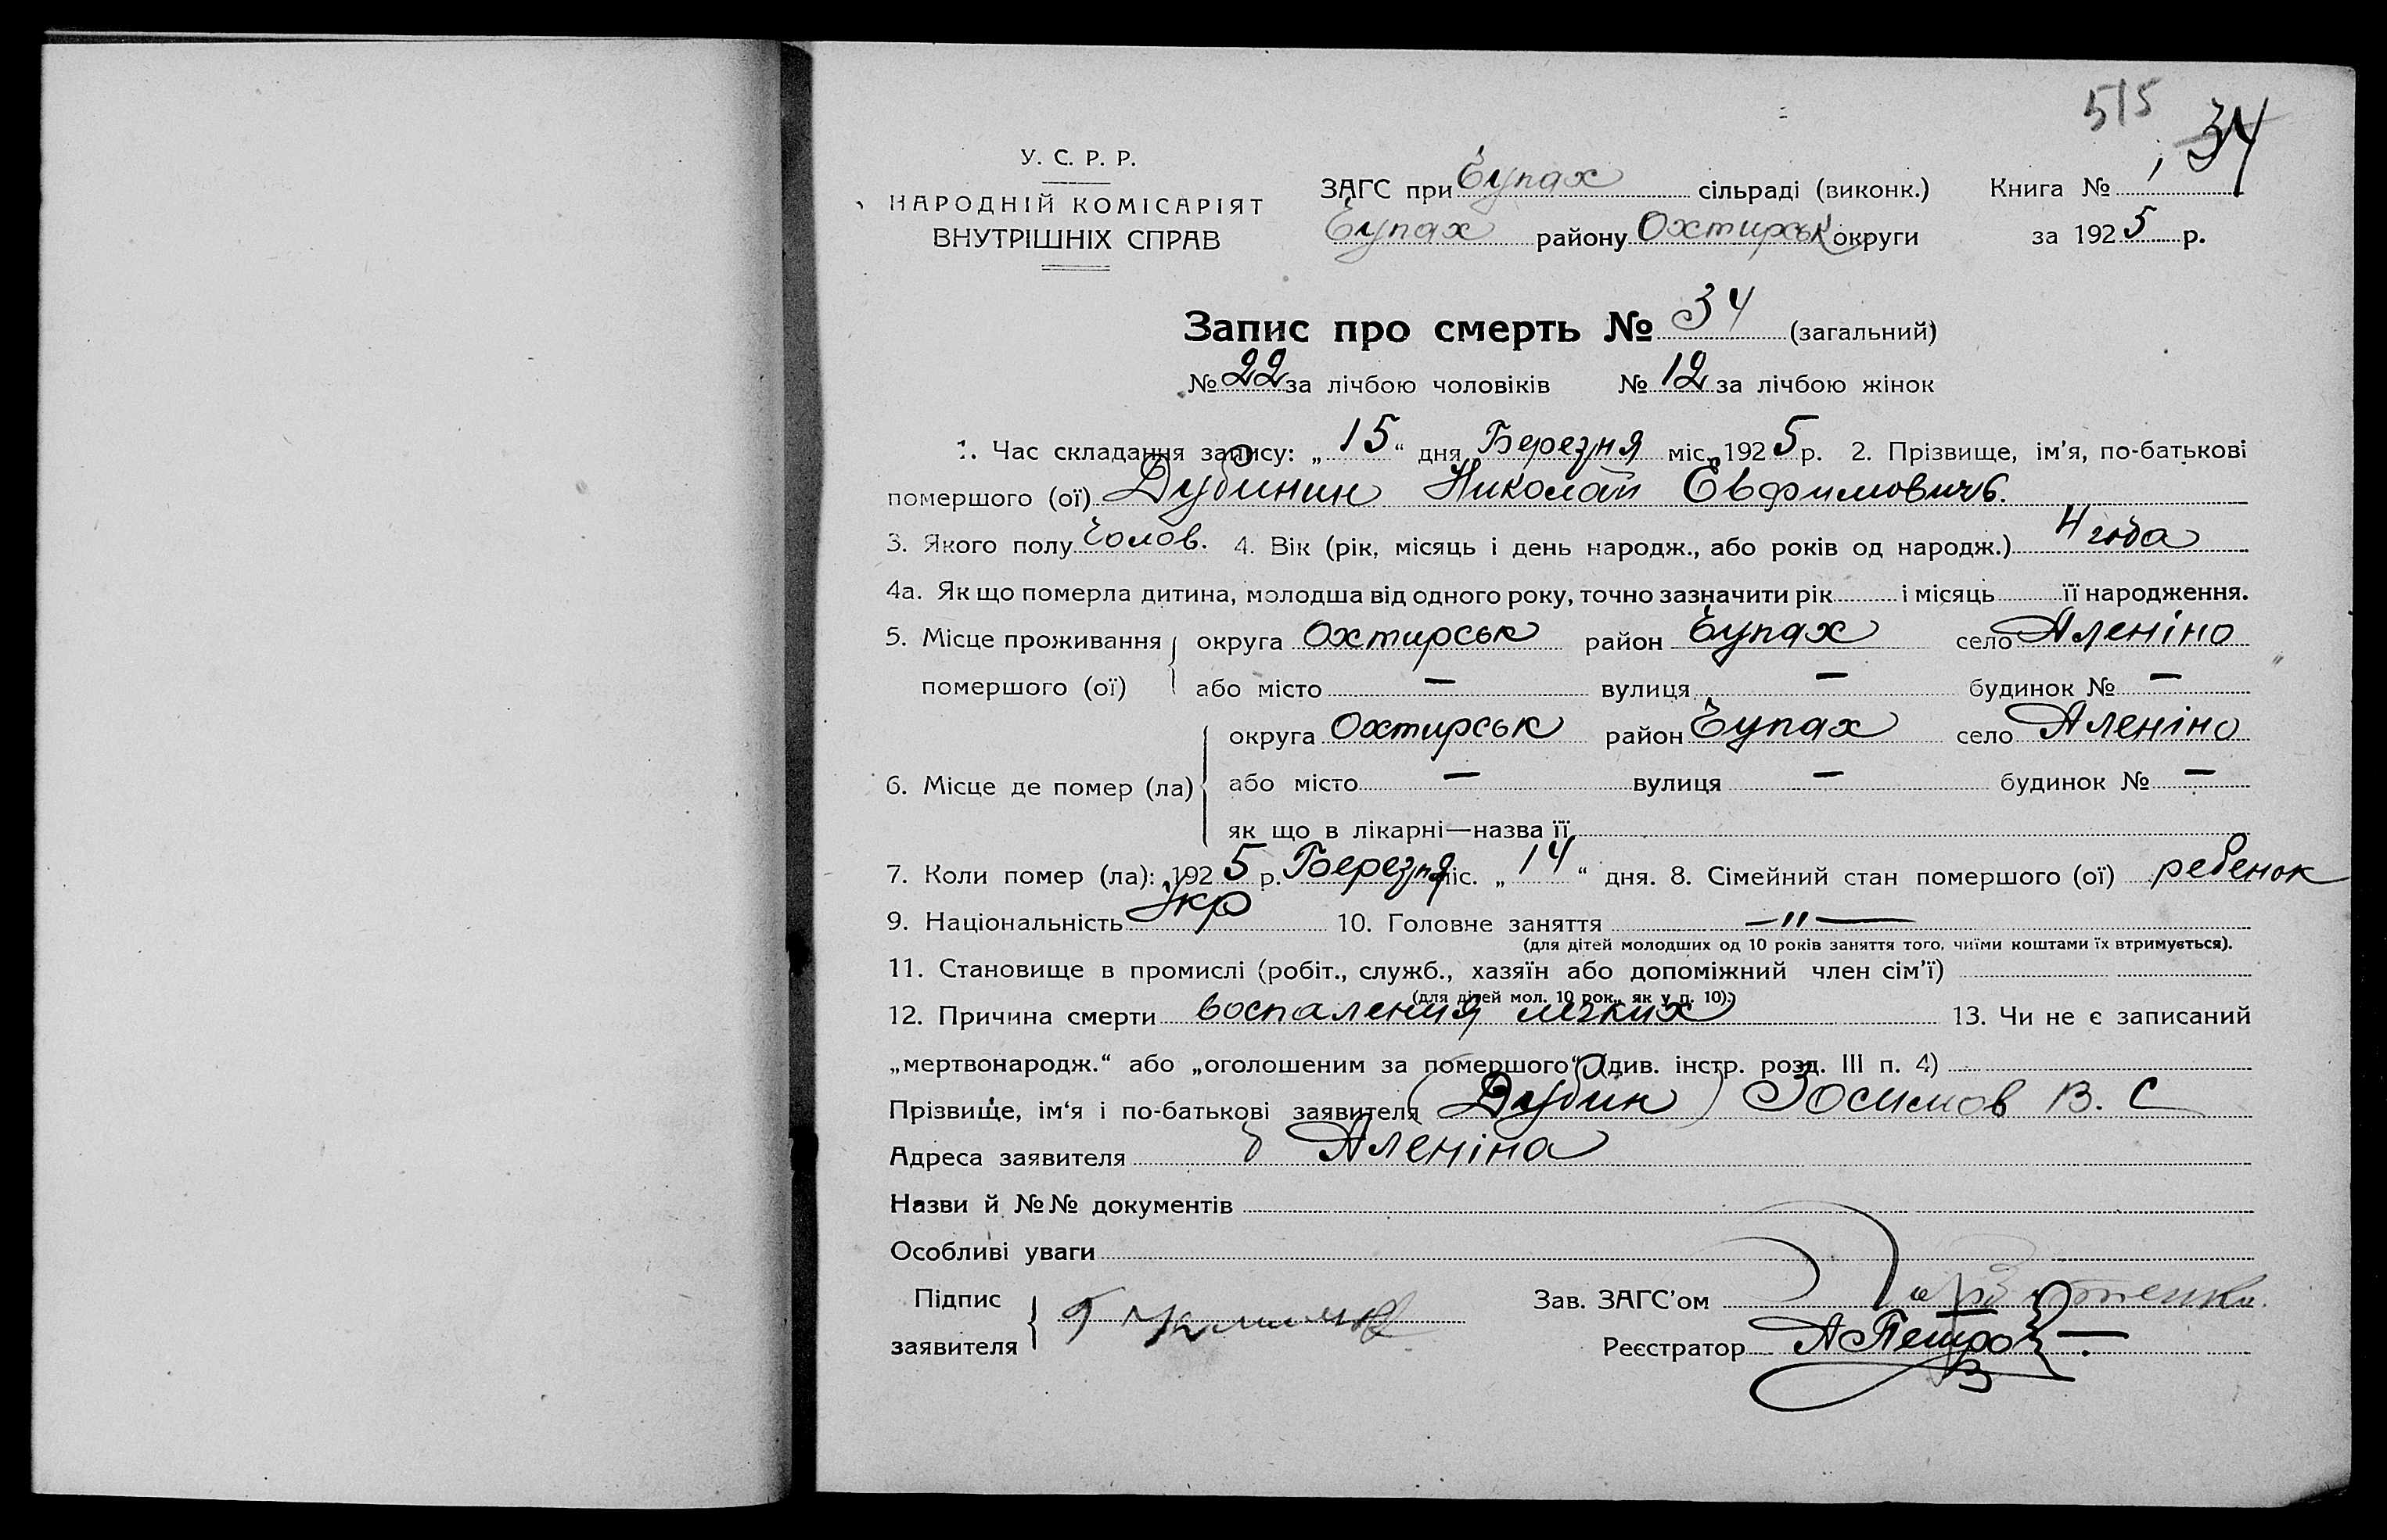 515
34
У. С. Р. Р.
НАРОДНІЙ КОМІСАРІЯТ
ВНУТРІШНІХ СПРАВ
ЗАГС при Чупах сільраді (виконк.) Книга № 1
Чупах району Охтирськ округи за 1925 р.
Запис про смерть № 34 (загальний)
№ 22 за лічбою чоловіків № 12 за лічбою жінок
1. Час складання запису: „15“ дня Березня міс. 1925 р. 2. Прізвище, ім'я, по-батькові
помершого (ої) Дубинин Николай Евфимовичъ.
3. Якого полу Чолов. 4. Вік (рік, місяць і день народж., або років од народж.) 4 года
4а. Як що померла дитина, молодша від одного року, точно зазначити рік і місяць її народження.
5. Місце проживання округа Охтирськ район Чупах село Аленіно
помершого (ої) або місто — вулиця — будинок № —
округа Охтирськ район Чупах село Аленіно
6. Місце де помер (ла) або місто — вулиця — будинок № —
як що в лікарні—назва її
7. Коли помер (ла): 1925 р. Березня міс. „14“ дня. 8. Сімейний стан помершого (ої) ребенок
9. Національність Укр 10. Головне заняття —"—
(для дітей молодших од 10 років заняття того, чиїми коштами їх втримується).
11. Становище в промислі (робіт., служб., хазяїн або допоміжний член сім'ї)
(для дітей мол. 10 рок., як у п. 10).
12. Причина смерти воспаления легких 13. Чи не є записаний
„мертвонародж.“ або „оголошеним за помершого“ (див. інстр. розд. III п. 4)
Прізвище, ім'я і по-батькові заявителя (Дубин) Зосимов В. С
Адреса заявителя Аленіна
Назви й №№ документів
Особливі уваги
Підпис
заявителя
Зав. ЗАГС'ом
Реєстратор А Петров